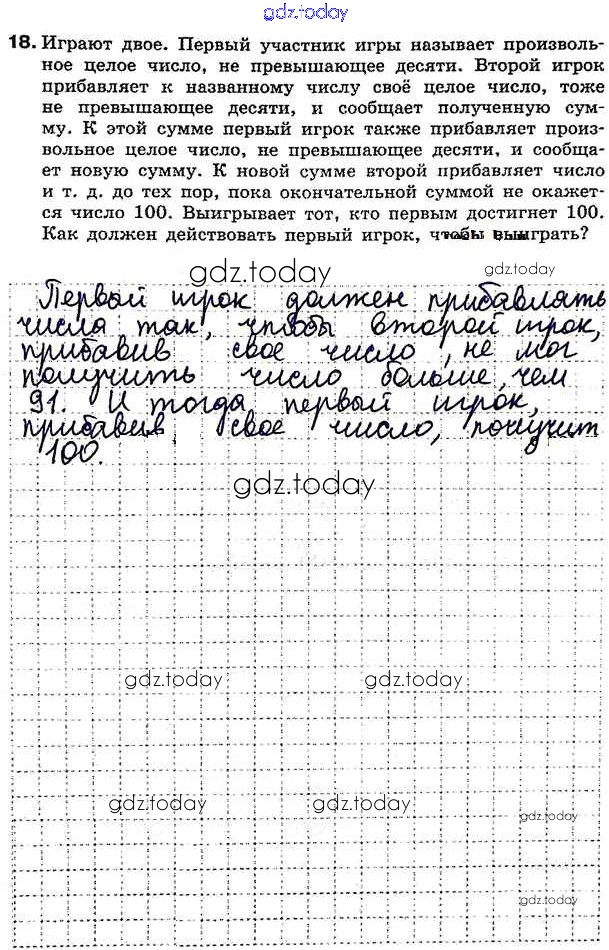 gdz.today
18. Играют двое. Первый участник игры называет произволь-
ное целое число, не превышающее десяти. Второй игрок
прибавляет к названному числу своё целое число, тоже
не превышающее десяти, и сообщает полученную сум-
му. К этой сумме первый игрок также прибавляет произ-
вольное целое число, не превышающее десяти, и сообща-
ет новую сумму. К новой сумме второй прибавляет число
и т. д. до тех пор, пока окончательной суммой не окажет-
ся число 100. Выигрывает тот, кто первым достигнет 100.
Как должен действовать первый игрок, чтобы выиграть?
gdz.today gdz.today
Первый игрок должен прибавлять
числа так, чтобы второй игрок,
прибавив свое число, не мог
получить число больше, чем
91. И тогда первый игрок,
прибавив свое число, получит
100.
gdz.today
gdz.today gdz.today
gdz.today gdz.today gdz.today
gdz.today